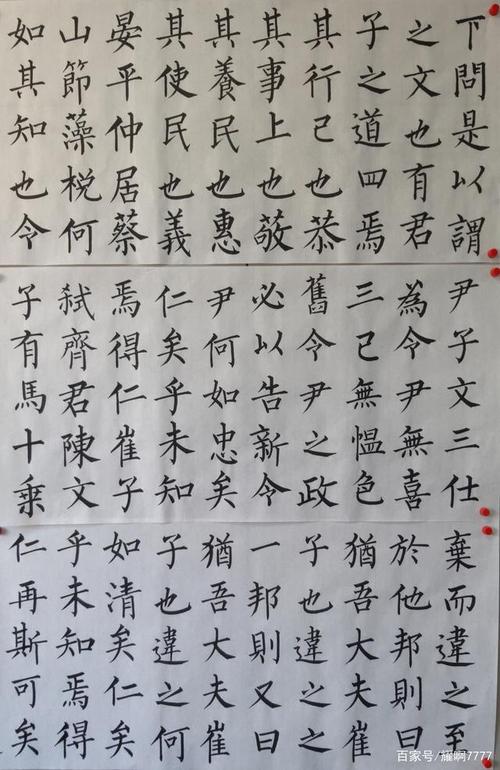 下問是以謂
之文也有君
子之道四焉
其行己也恭
其事上也敬
其養民也惠
其使民也義
晏平仲居蔡
山節藻梲何
如其知也令
尹子文三仕
為令尹無喜
三已無愠色
舊令尹之政
必以告新令
尹何如忠矣
仁矣乎未知
焉得仁崔子
弑齊君陳文
子有馬十乘
棄而違之至
於他邦則曰
猶吾大夫崔
子也違之之
一邦則又曰
猶吾大夫崔
子也違之何
如清矣仁矣
乎未知焉得
仁再斯可矣
百家号/耀啊7777